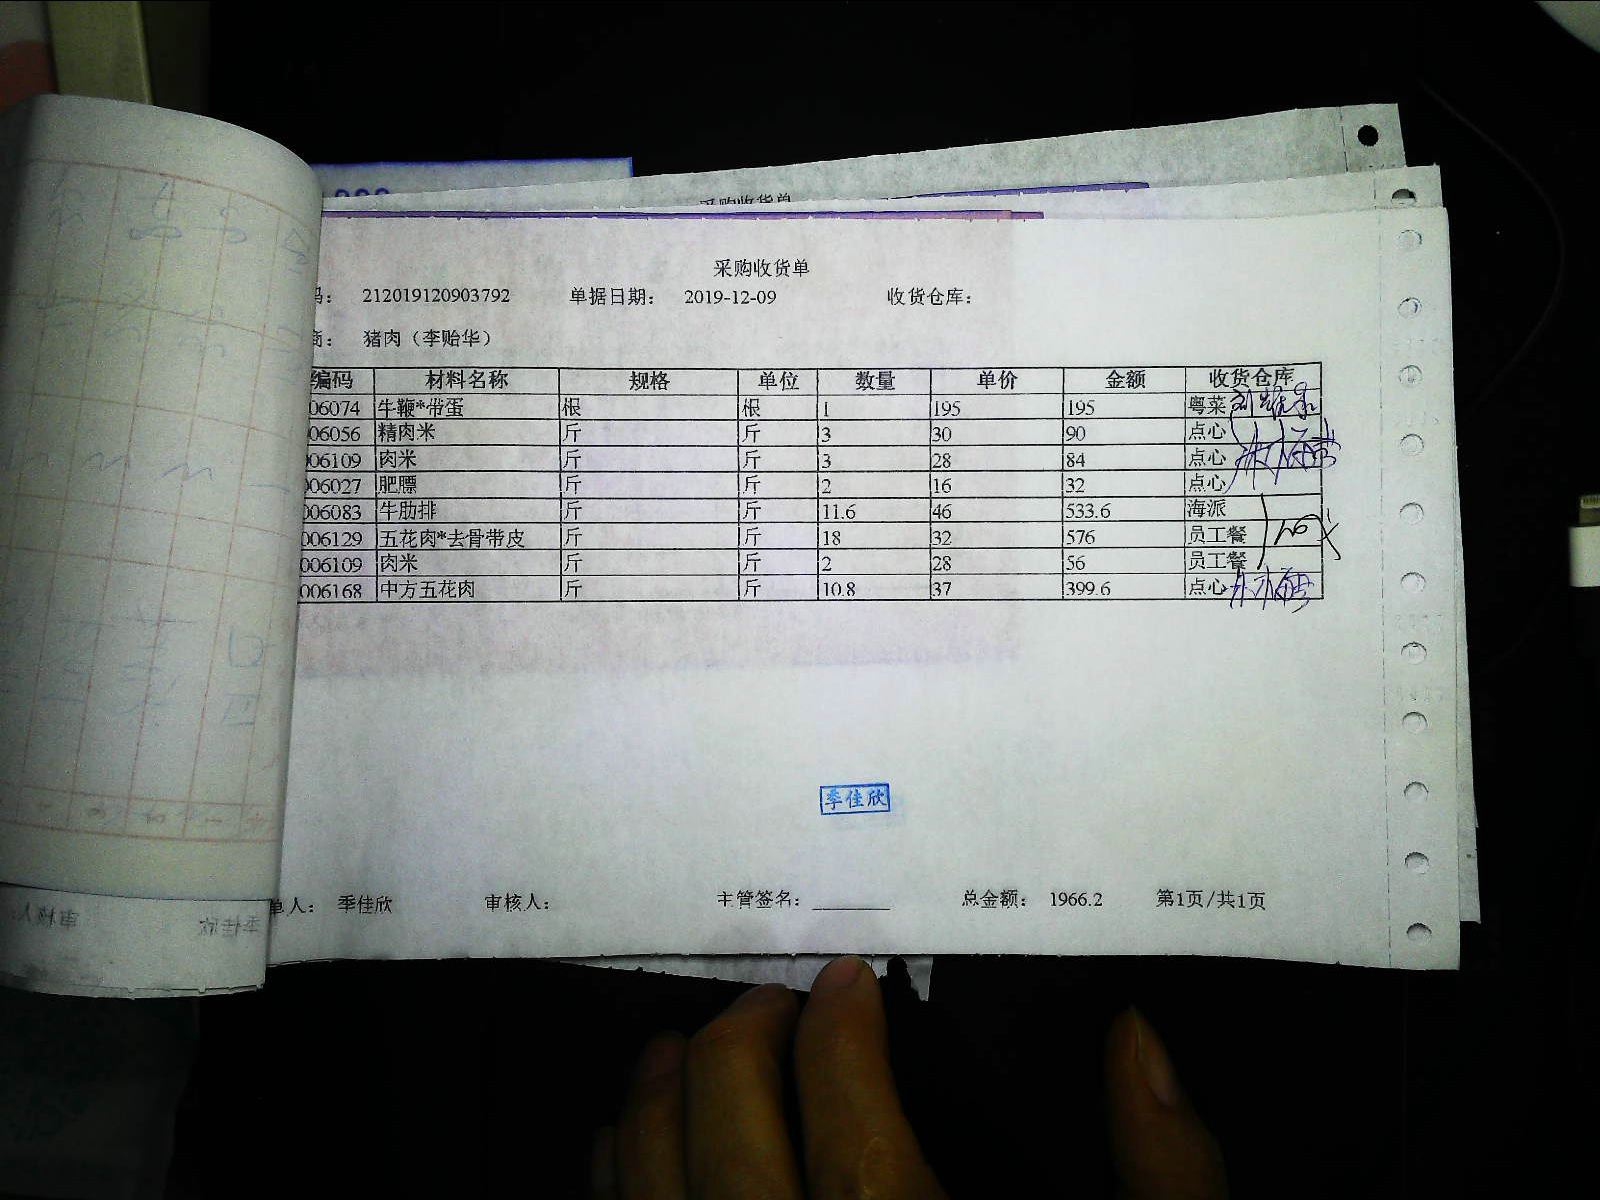 采购收货单
采购收货单
码： 212019120903792 单据日期： 2019-12-09 收货仓库：
商： 猪肉（李贻华）
编码 材料名称 规格 单位 数量 单价 金额 收货仓库
06074 牛鞭*带蛋 根 根 1 195 195 粤菜
06056 精肉米 斤 斤 3 30 90 点心
006109 肉米 斤 斤 3 28 84 点心
006027 肥膘 斤 斤 2 16 32 点心
006083 牛肋排 斤 斤 11.6 46 533.6 海派
006129 五花肉*去骨带皮 斤 斤 18 32 576 员工餐
006109 肉米 斤 斤 2 28 56 员工餐
006168 中方五花肉 斤 斤 10.8 37 399.6 点心
季佳欣
单人： 季佳欣 审核人： 主管签名： 总金额： 1966.2 第1页/共1页